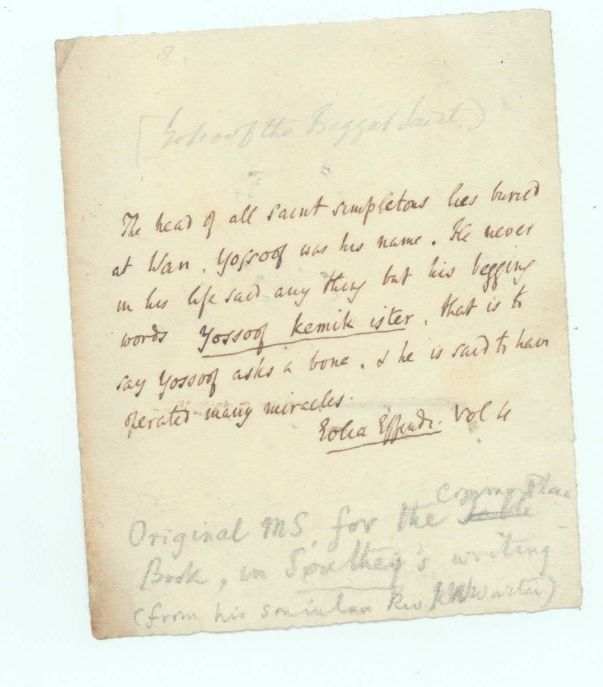 [Yossoof the Beggar Saint.)
The head of all saint simpletons lies buried
at Wan. Yossoof was his name. He never
in his life said any thing but his begging
words Yossoof kemik ister, that is to
say Yossoof asks a bone. & he is said to have
operated many miracles.
Evlia Effendi. Vol 4
Common Place
Original MS. for the
Book, in Southey's writing
(from his son in law Rev. J W Warter)